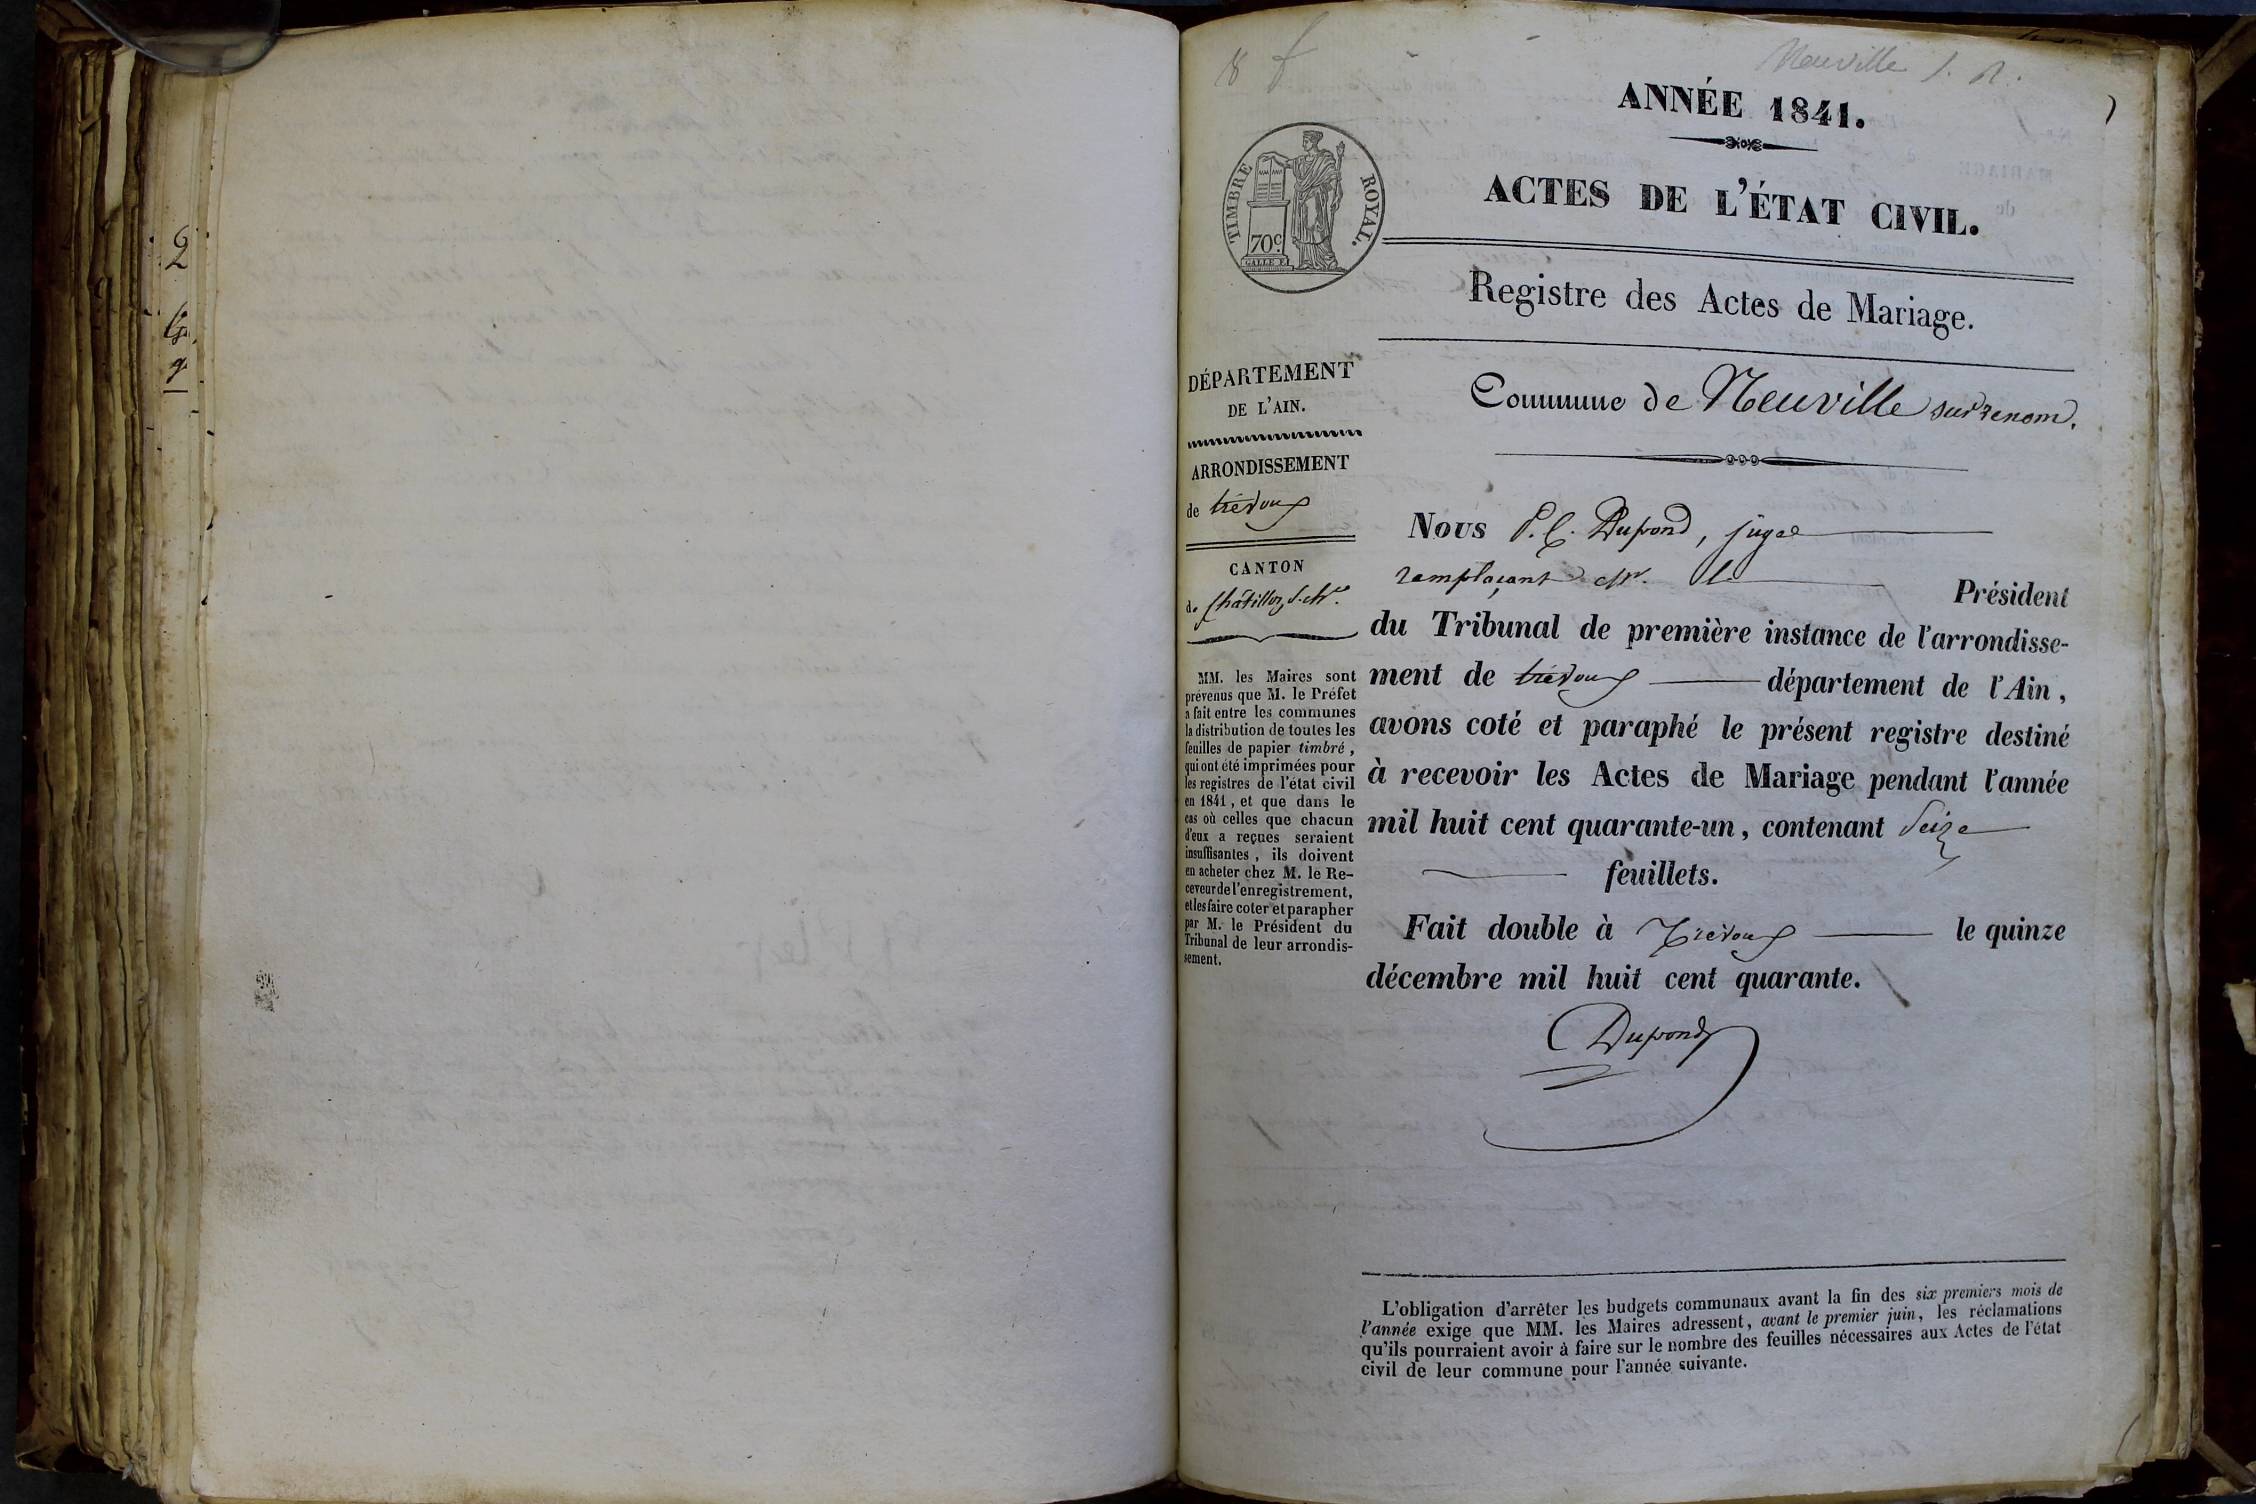 2
Neuville s. R.
ANNÉE 1841.
TIMBRE ROYAL.
70c.
ACTES DE L'ÉTAT CIVIL.
Registre des Actes de Mariage.
DÉPARTEMENT
DE L'AIN.
ARRONDISSEMENT
de trévoux
CANTON
de Châtillon s. chne.
MM. les Maires sont
prévenus que M. le Préfet
a fait entre les communes
la distribution de toutes les
feuilles de papier timbré,
qui ont été imprimées pour
les registres de l'état civil
en 1841, et que dans le
cas où celles que chacun
d'eux a reçues seraient
insuffisantes, ils doivent
en acheter chez M. le Re-
ceveur de l'enregistrement,
et les faire coter et parapher
par M. le Président du
Tribunal de leur arrondis-
sement.
Commune de Neuville sur renom.
Nous P. C. Dupond, juge
remplaçant Mr. le
Président
du Tribunal de première instance de l'arrondisse-
ment de trévoux département de l'Ain,
avons coté et paraphé le présent registre destiné
à recevoir les Actes de Mariage pendant l'année
mil huit cent quarante-un, contenant Seize
feuillets.
Fait double à Trévoux le quinze
décembre mil huit cent quarante.
Dupond
L'obligation d'arrêter les budgets communaux avant la fin des six premiers mois de
l'année exige que MM. les Maires adressent, avant le premier juin, les réclamations
qu'ils pourraient avoir à faire sur le nombre des feuilles nécessaires aux Actes de l'état
civil de leur commune pour l'année suivante.